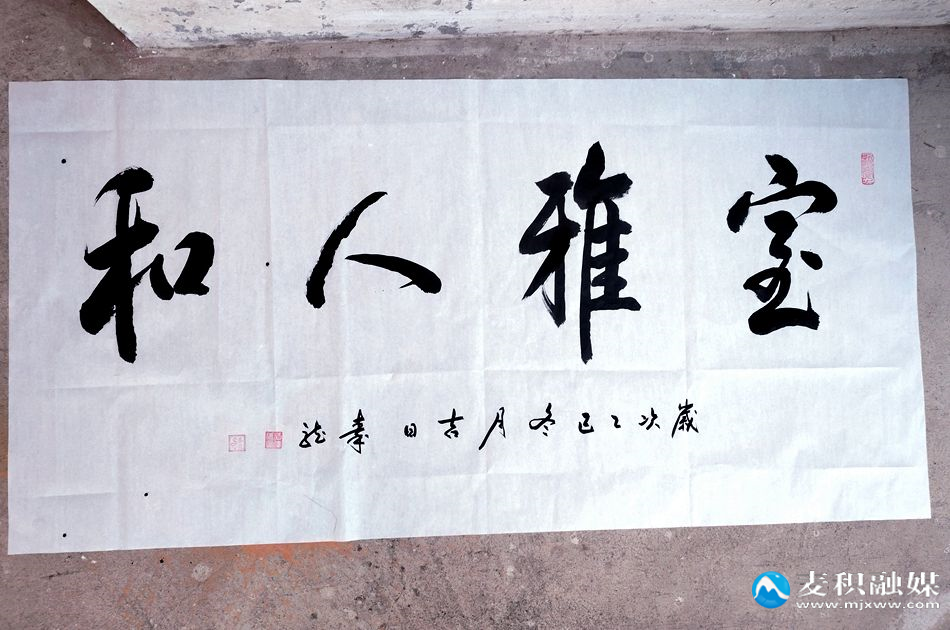 室雅人和
歲次乙巳冬月吉日秦龙
麦积融媒
www.mjxww.com